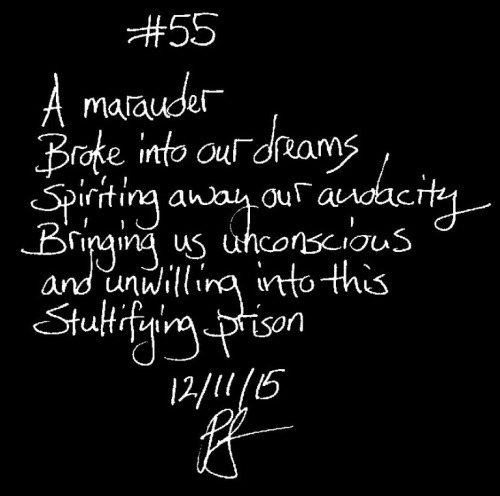 #55
A marauder
Broke into our dreams
Spiriting away our audacity
Bringing us unconscious
and unwilling into this
Stultifying prison
12/11/15